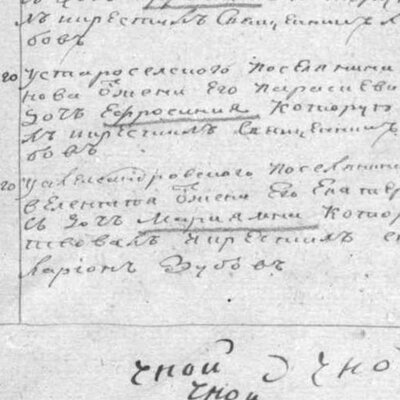 лъ и крестилъ Священникъ
бовъ
20 У старосельского поселянина
нова Жены Его Парасиеви
дочь Ефросиния которую
лъ и крестилъ Священникъ
бовъ
20 У александровского поселянин
Жены Его Екатер
дочь Мариамна Котор
твовалъ икрестилъ
Ларионъ Зубовъ
чной чно
чной